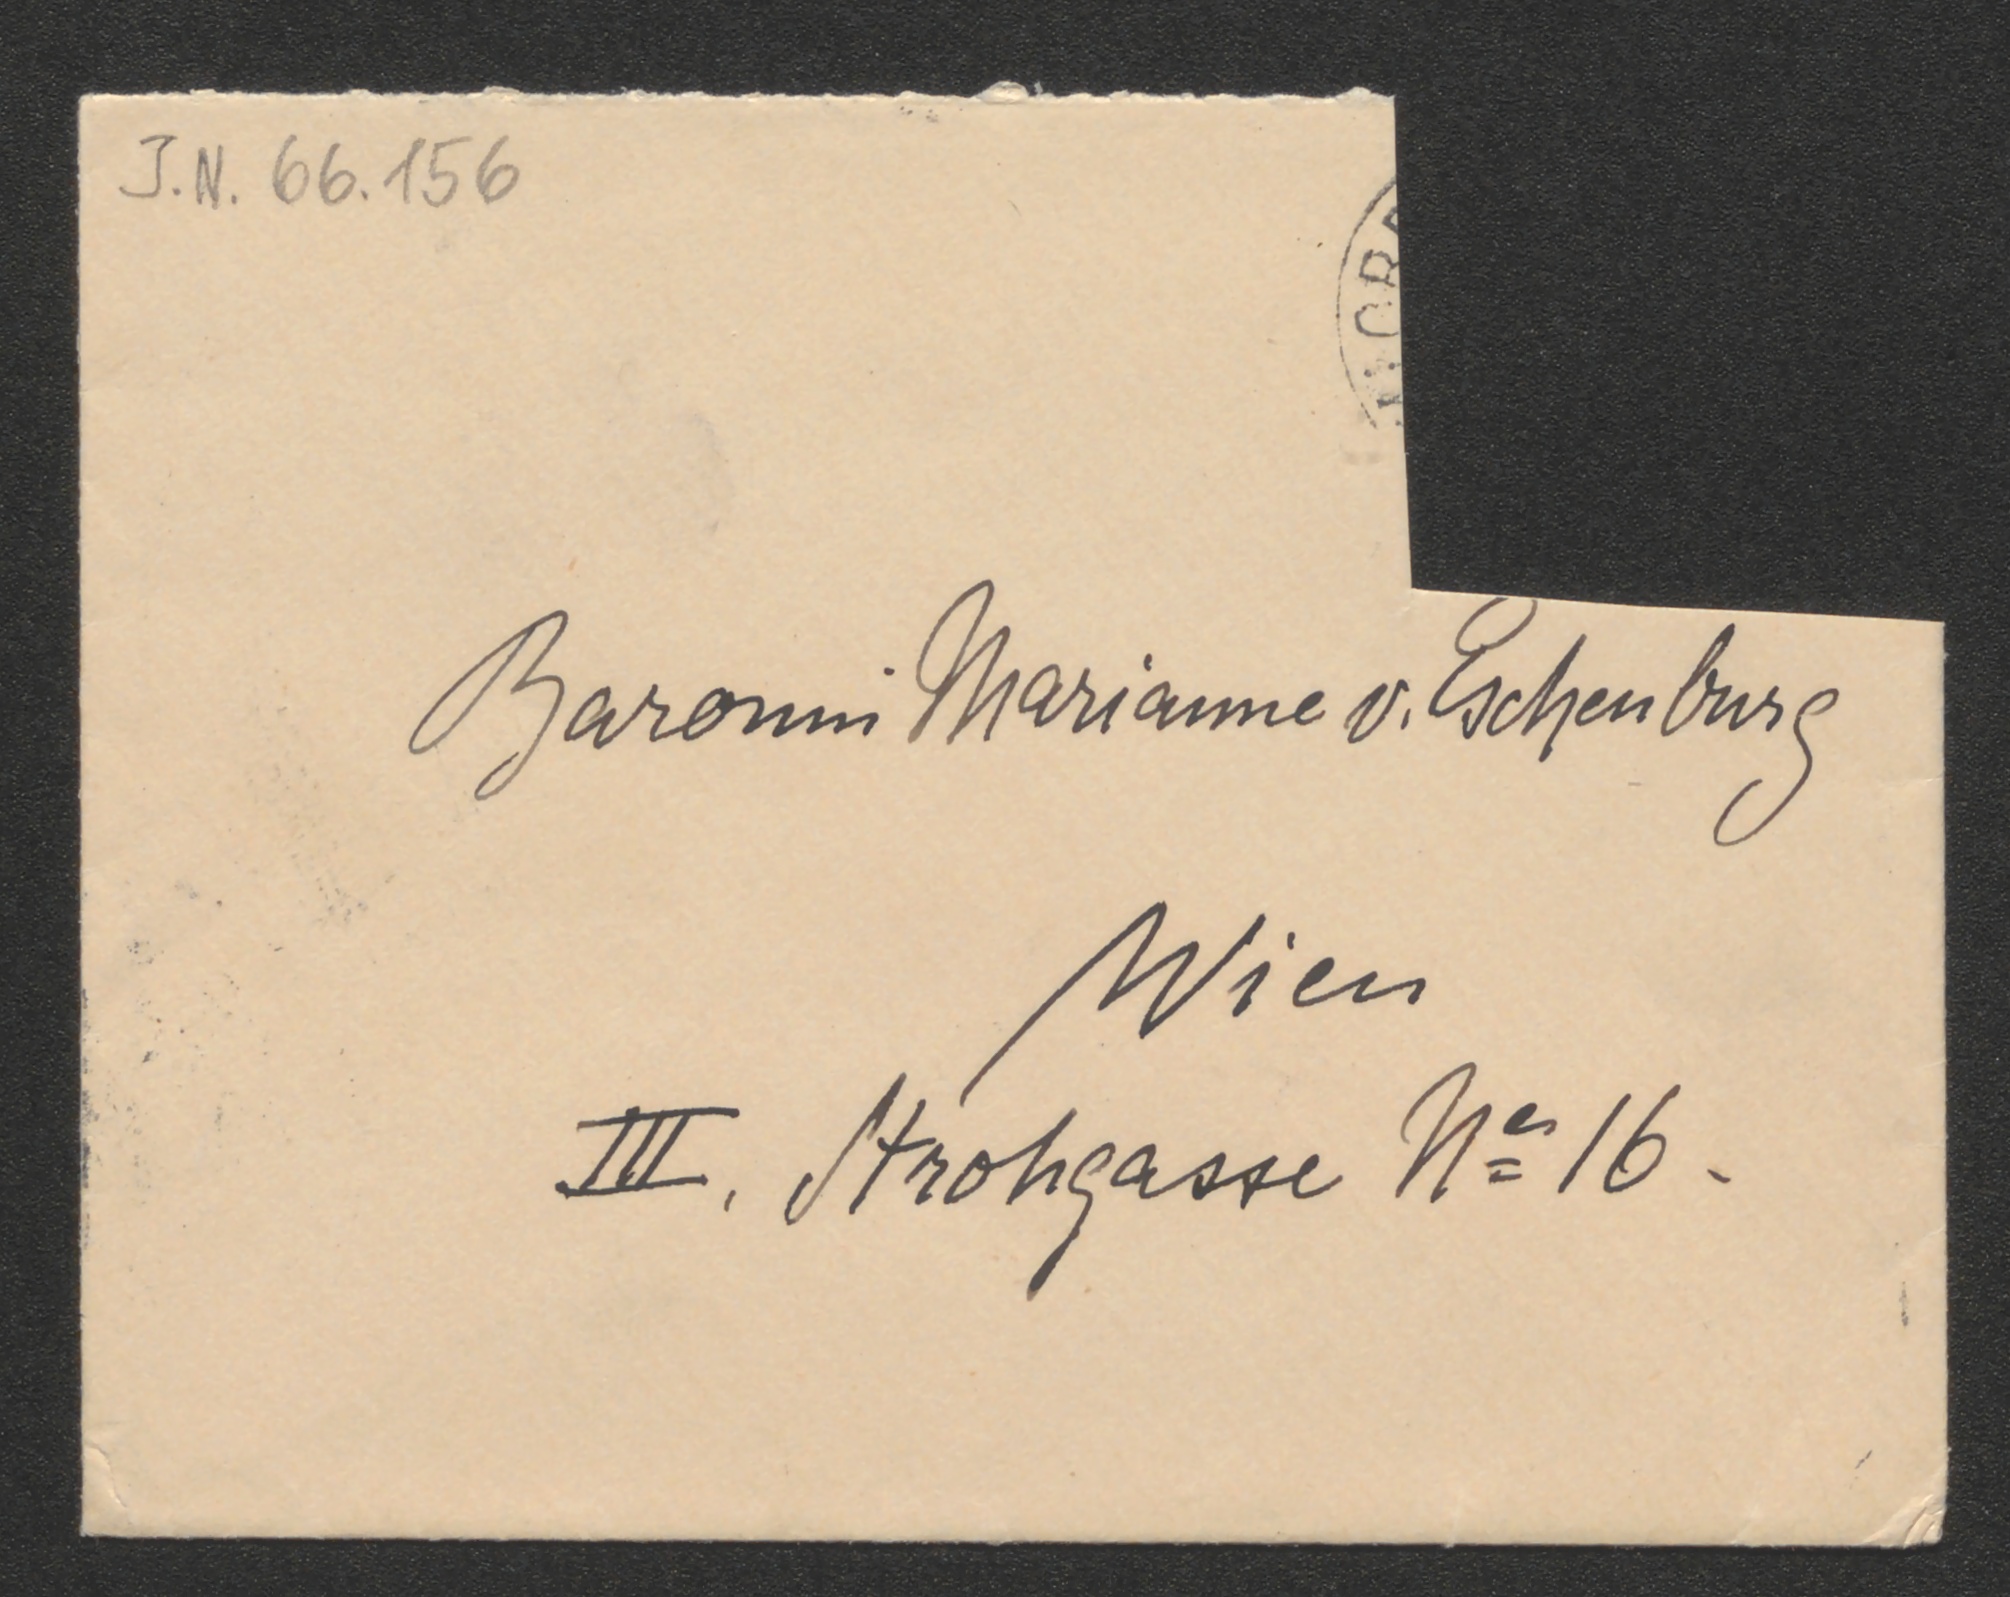 J.N. 66.156
Baronin Marianne v. Eschenburg
Wien
III, Strohgasse Ner 16.